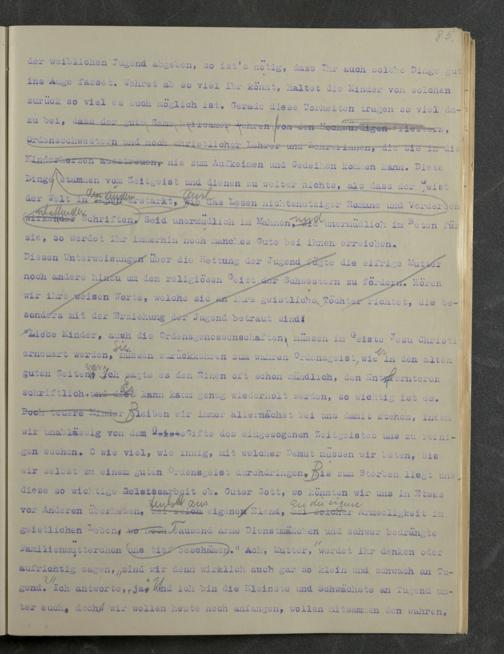 85.
der weiblichen Jugend abgeben, so ist's nötig, dass Ihr auch solche Dinge gut
ins Auge fasset. Wehret ab so viel Ihr könnt, haltet die Kinder von solchen
zurück so viel es euch möglich ist. Gerade diese Torheiten tragen so viel da-
zu bei, dass der gute Same heilsamer Lehren von den Hochwürdigen Priestern,
Ordensschwestern und noch christlicher Lehrer und Lehrerinnen, die sie in die
Kinderherzen ausstreuen, nie zum Aufkeimen und Gedeihen kommen kann. Diese
Dinge stammen vom Zeitgeist und dienen zu weiter nichts, als dass der Geist
der Welt in erstarkt, das Lesen nichtsnutziger Romane und Verderben
Schriften. Seid unermüdlich im Mahnen, und unermüdlich im Beten für
sie, so werdet Ihr immerhin noch manches Gute bei ihnen erreichen.
Diesen Unterweisungen über die Rettung der Jugend fügte die eifrige Mutter
noch andere hinzu um den religiösen Geist der Schwestern zu fördern. Hören
wir ihre weisen Worte, welche sie an ihre geistliche Töchter richtet, die be-
sonders mit der Erziehung der Jugend betraut sind:
"Liebe Kinder, auch die Ordensgenossenschaften, müssen im Geiste Jesu Christi
erneuert werden, Sie müssen zurückkehren zum wahren Ordensgeist, wie er in den alten
guten Zeiten war. Ich sagte es den Einen oft schon mündlich, den Entfernteren
schriftlich und dies Es kann kaum genug wiederholt werden, so wichtig ist es.
Doch teure Kinder Bleiben wir immer allernächst bei uns damit stehen, indem
wir unablässig von dem Gifte des eingesogenen Zeitgeistes uns zu reini-
gen suchen. O wie viel, wie innig, mit welcher Demut müssen wir beten, bis
wir selbst zu einem guten Ordensgeist durchdringen. Bis zum Sterben liegt uns
diese so wichtige Geistesarbeit ob. Guter Gott, so könnten wir uns in Etwas
vor Anderen überheben, eigenem Elend, Armseligkeit im
geistlichen Leben, Tausend arme Dienstmädchen und schwer bedrängte
Familienmütterchen uns tief beschämen." Ach, Mutter, werdet Ihr denken oder
aufrichtig sagen, "sind wir denn wirklich auch gar so klein und schwach an Tu-
gend?" Ich antworte, "ja," Und ich bin die Kleinste und Schwächste an Tugend un-
ter euch, doch wir wollen heute noch anfangen, wollen mitsammen den wahren,